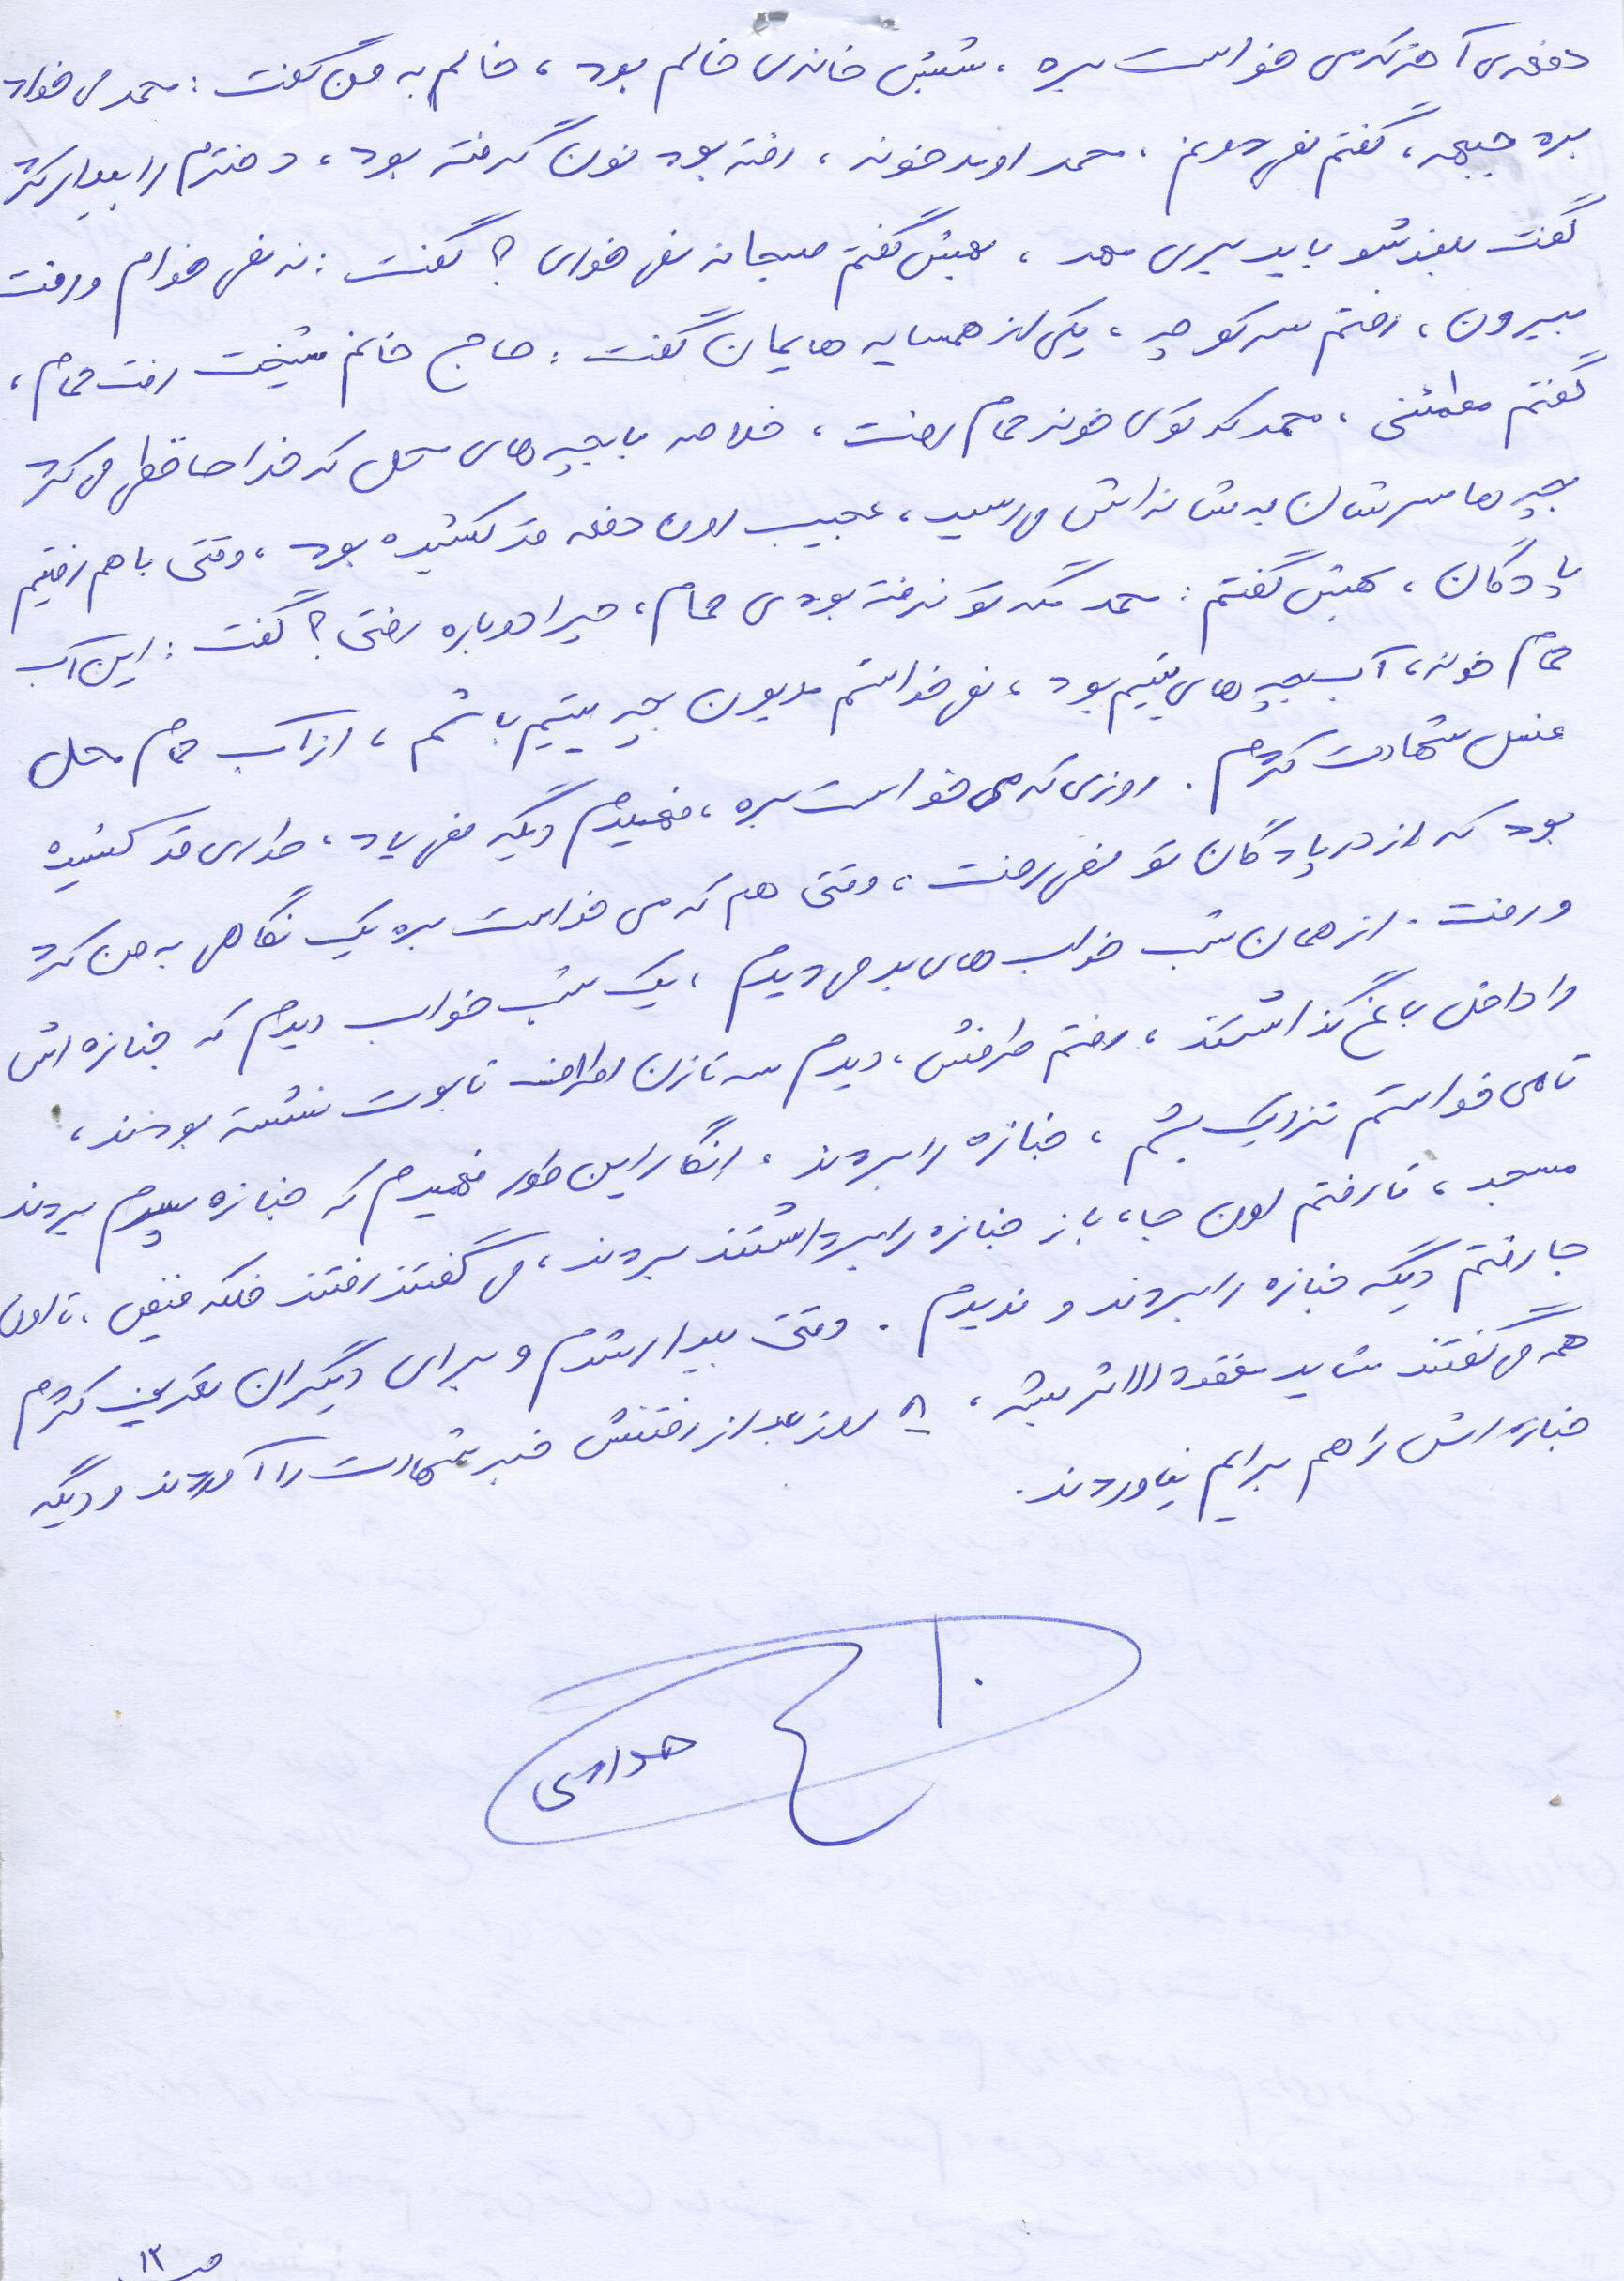 دفعه‌ی آخر که می خواست بره ، شبش خانه‌ی خالم بود ، خالم به من گفت : محمد می خواد
بره جبهه ، گفتم نمی دونم ، محمد اومد خونه ، رفته بود نون گرفته بود ، دخترم را بیدار کرد
گفت بلند شو باید بیری مهد ، بهش گفتم صبحانه نمی خوای ؟ گفت : نه نمی خوام و رفت
بیرون ، رفتم سر کوچه ، یکی از همسایه هایمان گفت : حاج خانم شیخت رفت حمام ،
گفتم مطمئنی ، محمد که توی خونه حمام رفت ، خلاصه با بچه های محل که خداحافظی می کرد
بچه ها سرشان به شانه اش می رسید ، عجیب اون دفعه قد کشیده بود ، وقتی با هم رفتیم
پادگان ، بهش گفتم : محمد مگه تو نرفته بودی حمام ، چرا دوباره رفتی ؟ گفت : این آب
حمام خونه ، آب بچه های یتیم بود ، نمی خواستم مدیون بچه یتیم باشم ، از آب حمام محل
غسل شهادت کردم . روزی که می خواست بره ، فهمیدم دیگه نمی یاد ، طوری قد کشیده
بود که از در پادگان تو نمی رفت ، وقتی هم که می خواست بره یک نگاهی به من کرد
و رفت . از همان شب خواب های بد می دیدم ، یک شب خواب دیدم که جنازه اش
را داخل باغ گذاشتند ، رفتم طرفش ، دیدم سه تا زن اطراف تابوت نشسته بودند ،
تا می خواستم نزدیک بشم ، جنازه را بردند ، انگار این طور فهمیدم که جنازه پسرم بردند
مسجد ، تا رفتم اون جا ، باز جنازه را برداشتند بردند ، می گفتند رفتند فلکه فیض ، تا اون
جا رفتم دیگه جنازه را بردند و ندیدم . وقتی بیدار شدم و برای دیگران تعریف کردم
همه می گفتند شاید مفقود الاثر بشه ، ۸ روز بعد از رفتنش خبر شهادت را آوردند و دیگه
جنازه اش را هم برایم نیاوردند .
ص ۱۳